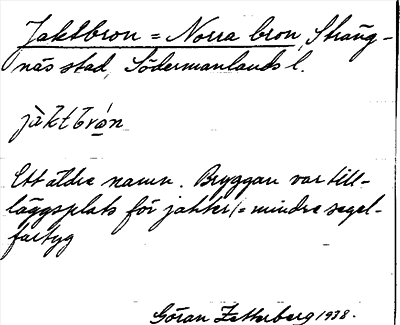 Jaktbron = Norra bron, Sträng-
näs stad, Södermanlands l.
jàktbrón
Ett äldre namn. Bryggan var till-
läggsplats för jakter/= mindre segel-
fartyg
Göran Zetterberg 1938.